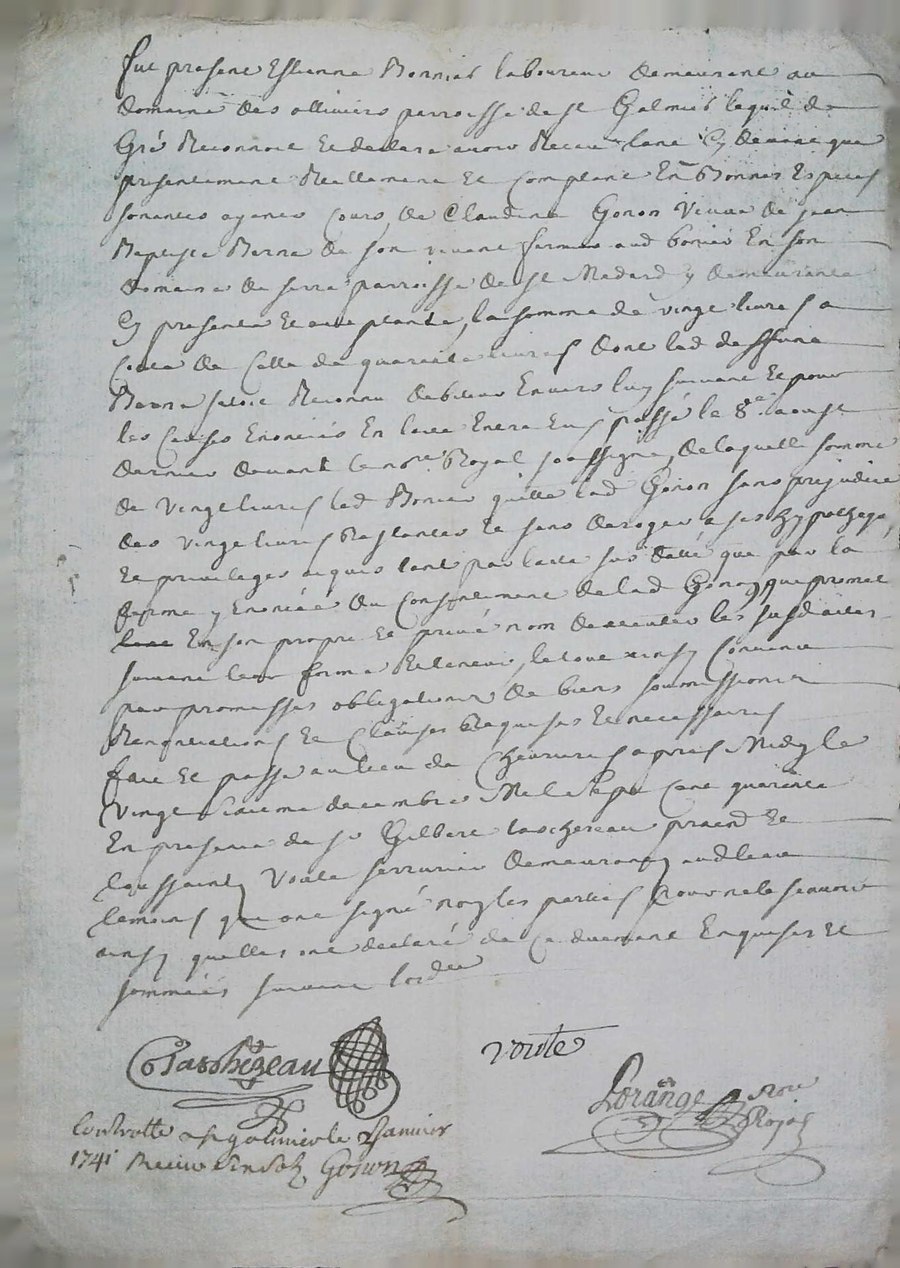 fut present Estienne Bonnier laboureur demeurant au
domaine des olliviers parroisse de st Galmier lequel de
Gré Reconnoit et declare avoir Receu tant Cy devant que
presentement Reellement et Comptant En Bonnes Especes
sonantes ayants Cours de Claudine Goron Veuve de jean
Baptiste Berne de son vivant fermier aud bonier En son
domaine de serre parroisse de st Medard y demeurante
Cy presente et aceptante, la somme de vingt livres a
Conte de Celle de quarante livres dont led deffunt
Berne setoit Reconnu debiteur Envers luy suivant et pour
les Causes Enoncés En lacte Entre Eux passé le 8e aoust
dernier devant le nore Royal soussigné, de laquelle somme
de vingt livres led Bonier quitte lad Goron sans prejudice
des vingt livres Restantes et sans deroger a ses hypotheque
Et privileges aquis tant par lacte sus datté que par la
ferme y Enoncée du Consentement de lad Goron, qui promet
En son propre et privé nom dexecuter les susd actes
suivant leur forme et teneur, le tout ainsy Convenu
par promesses obligations de biens soumissions
Renontiations et Clauses Requises et necessaires
fait et passé au lieu de Chevrieres apres Midy le
vingt sixieme decembre Mil sept Cent quarante
En presence de sr Gilbert taschereau praend et
toussaint Voute serrurier demeurants aud lieu
temoins qui ont signé non les parties pour ne le scavoir
ainsy quelles ont declaré de Ce duement Enquises et
sommées suivant lordce
Taschezeau
voute
Lorange nore
Royal
Controllé a st galmier le janvier
1741 Receu Goron